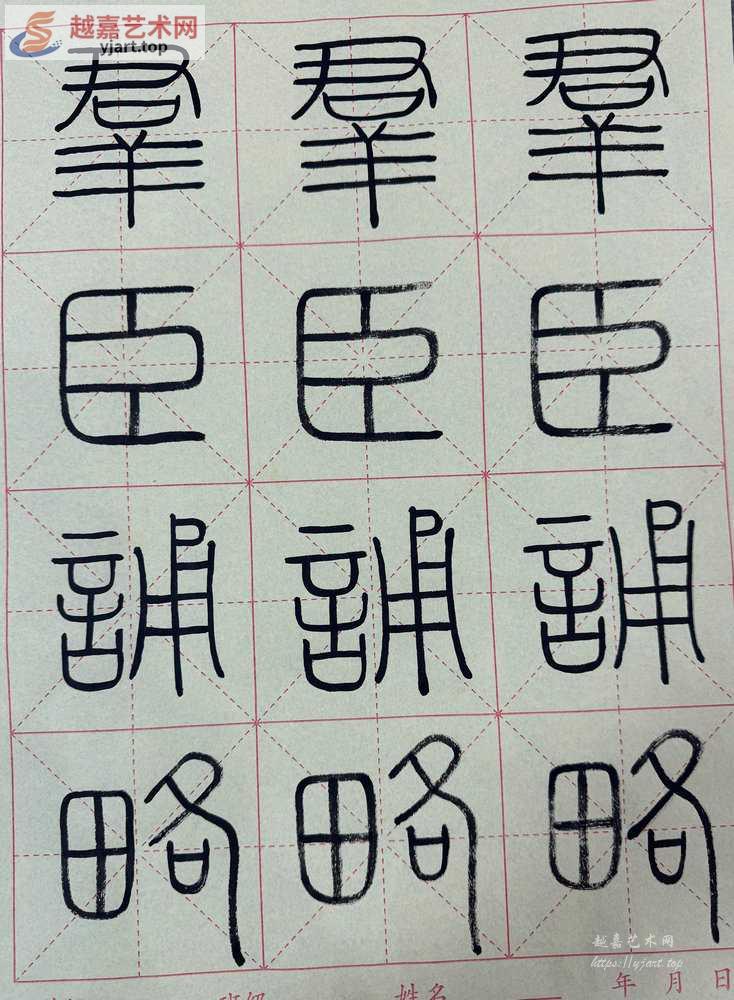 越嘉艺术网
yjart.top
羣 羣 羣
臣 臣 臣
誦 誦 誦
略 略 略
越嘉艺术网
https://yjart.top
姓名 年 月 日